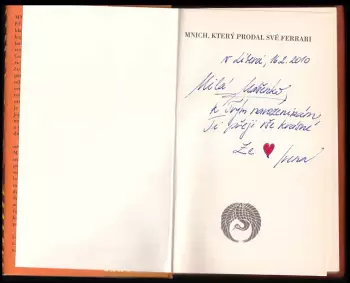 MNICH, KTERÝ PRODAL SVÉ FERRARI
V 16.2. 2010
Milá
k Tvým narozeninám
Ti přeji vše krásné
Ze ♥